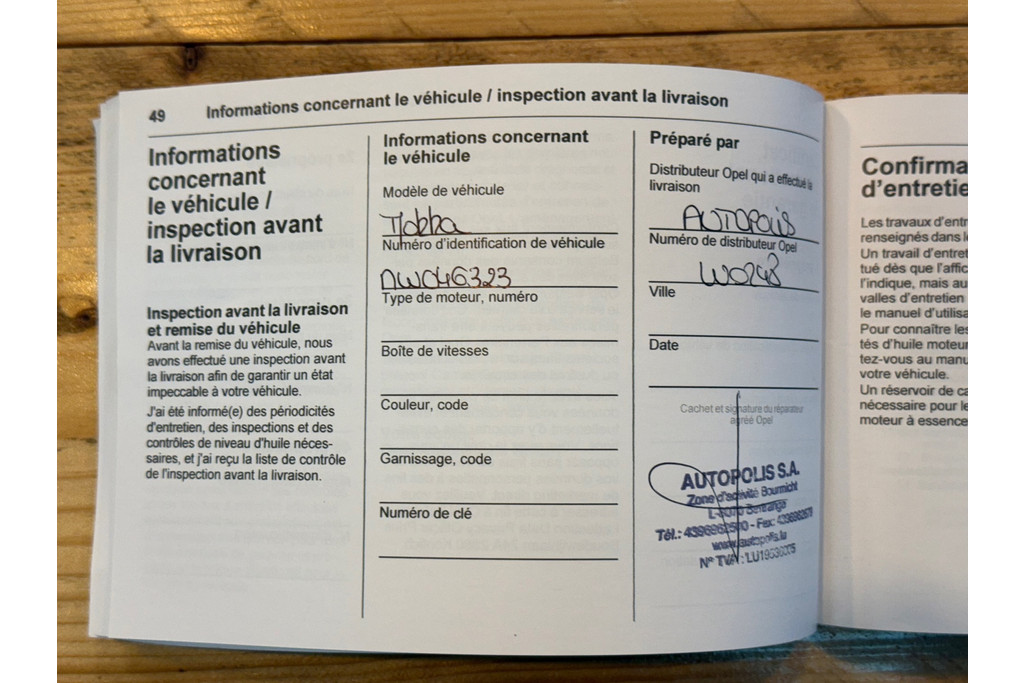 49 Informations concernant le véhicule / inspection avant la livraison
Informations
concernant
le véhicule /
inspection avant
la livraison
Inspection avant la livraison
et remise du véhicule
Avant la remise du véhicule, nous
avons effectué une inspection avant
la livraison afin de garantir un état
impeccable à votre véhicule.
J'ai été informé(e) des périodicités
d'entretien, des inspections et des
contrôles de niveau d'huile néces-
saires, et j'ai reçu la liste de contrôle
de l'inspection avant la livraison.
Informations concernant
le véhicule
Modèle de véhicule
Mokka
Numéro d'identification de véhicule
Type de moteur, numéro
Boîte de vitesses
Couleur, code
Garnissage, code
Numéro de clé
Préparé par
Distributeur Opel qui a effectué la
livraison
AUTOPOLIS
Numéro de distributeur Opel
W0248
Ville
Date
Cachet et signature du réparateur
agréé Opel
AUTOPOLIS S.A.
Zone d'activité Bourmicht
L-8070 Bertrange
Tél.: - Fax:
www.autopolis.lu
N° TVA :
Confirma
d'entretie
Les travaux d'entr
renseignés dans l
Un travail d'entret
tué dès que l'affic
l'indique, mais au
valles d'entretien
le manuel d'utilisa
Pour connaître les
tés d'huile moteur
tez-vous au manu
votre véhicule.
Un réservoir de ca
nécessaire pour le
moteur à essence